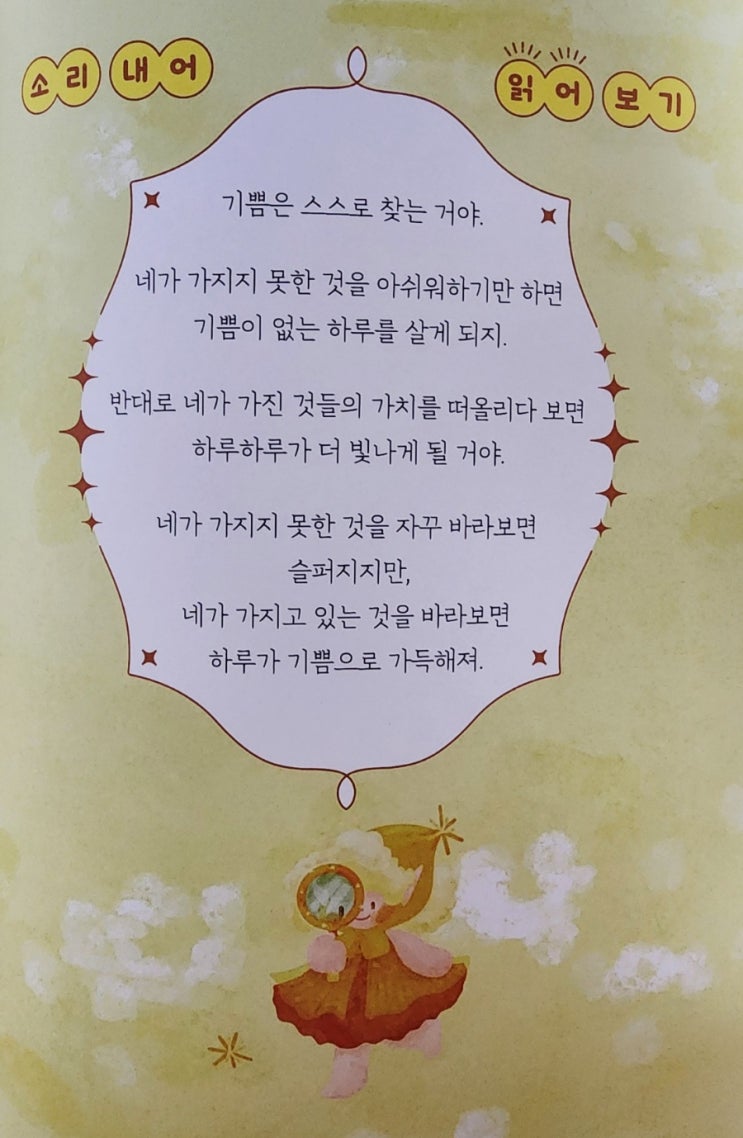 소리 내어 읽어 보기
기쁨은 스스로 찾는 거야.
네가 가지지 못한 것을 아쉬워하기만 하면
기쁨이 없는 하루를 살게 되지.
반대로 네가 가진 것들의 가치를 떠올리다 보면
하루하루가 더 빛나게 될 거야.
네가 가지지 못한 것을 자꾸 바라보면
슬퍼지지만,
네가 가지고 있는 것을 바라보면
하루가 기쁨으로 가득해져.